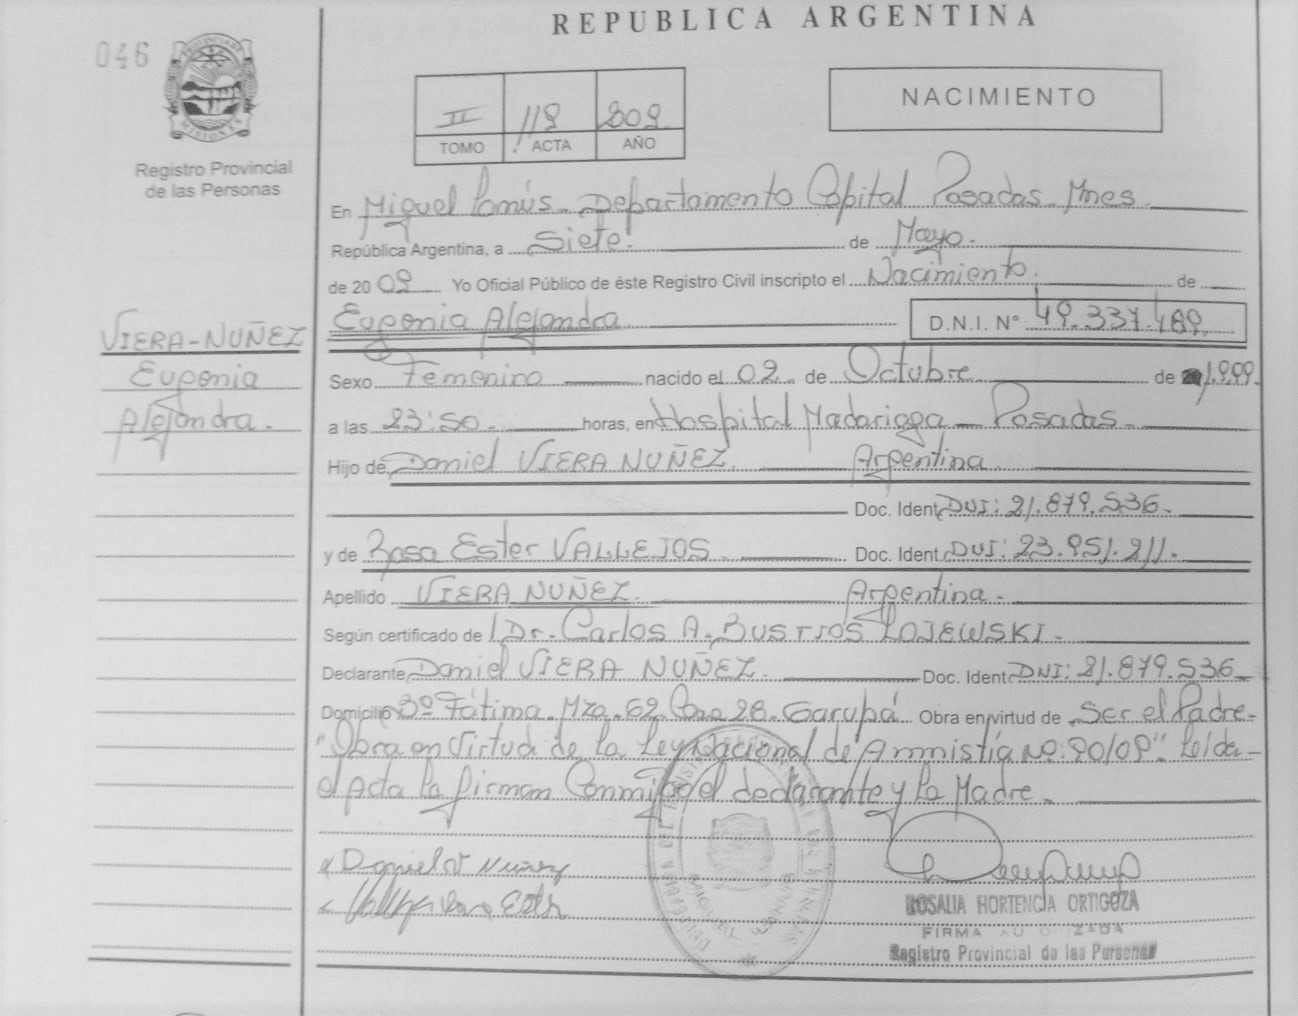 REPUBLICA ARGENTINA
046
PROVINCIA DE
MISIONES
Registro Provincial
de las Personas
II 119 2009
TOMO ACTA AÑO
NACIMIENTO
En Miguel Lanús. Departamento Capital Posadas Mnes.
República Argentina, a Siete. de Mayo.
de 20 09 Yo Oficial Público de éste Registro Civil inscripto el Nacimiento. de
Eugenia Alejandra D.N.I. N° 49.337.489
VIERA-NUÑEZ
Eugenia
Alejandra.
Sexo Femenino nacido el 02 de Octubre de 1.999.
a las 23:50. horas, en Hospital Madariaga - Posadas.
Hijo de Daniel VIERA NUÑEZ. Argentina
Doc. Ident. DNI: 21.879.536.
y de Rosa Ester VALLEJOS. Doc. Ident. DNI: 23.951.211.
Apellido VIERA NUÑEZ. Argentina.
Según certificado de Dr. Carlos A. BUSTIOS LOJEWSKI.
Declarante Daniel VIERA NUÑEZ. Doc. Ident. DNI: 21.879.536
Domicilio Bº Fátima. Mza. 62. Casa 28. Garupá Obra en virtud de Ser el Padre.-
"Obra en Virtud de la Ley Nacional de Amnistía Nº: 90/09". Leída-
el Acta la firman Conmigo el declarante y la Madre.
x Daniel V Nuñez
ROSALIA HORTENCIA ORTIGOZA
FIRMA AUTORIZADA
Registro Provincial de las Personas